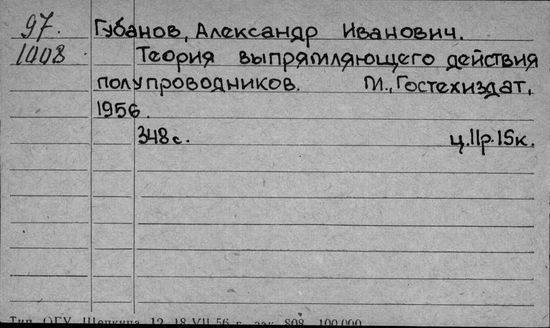 97. Губанов, Александр Иванович.
1008 Теория выпрямляющего действия
полупроводников. М., Гостехиздат,
1956.
348 с. ц. 11р. 15к.
Тип. ОГУ, Щепкина, 12 18 VII-56 г. зак. 808 100.000